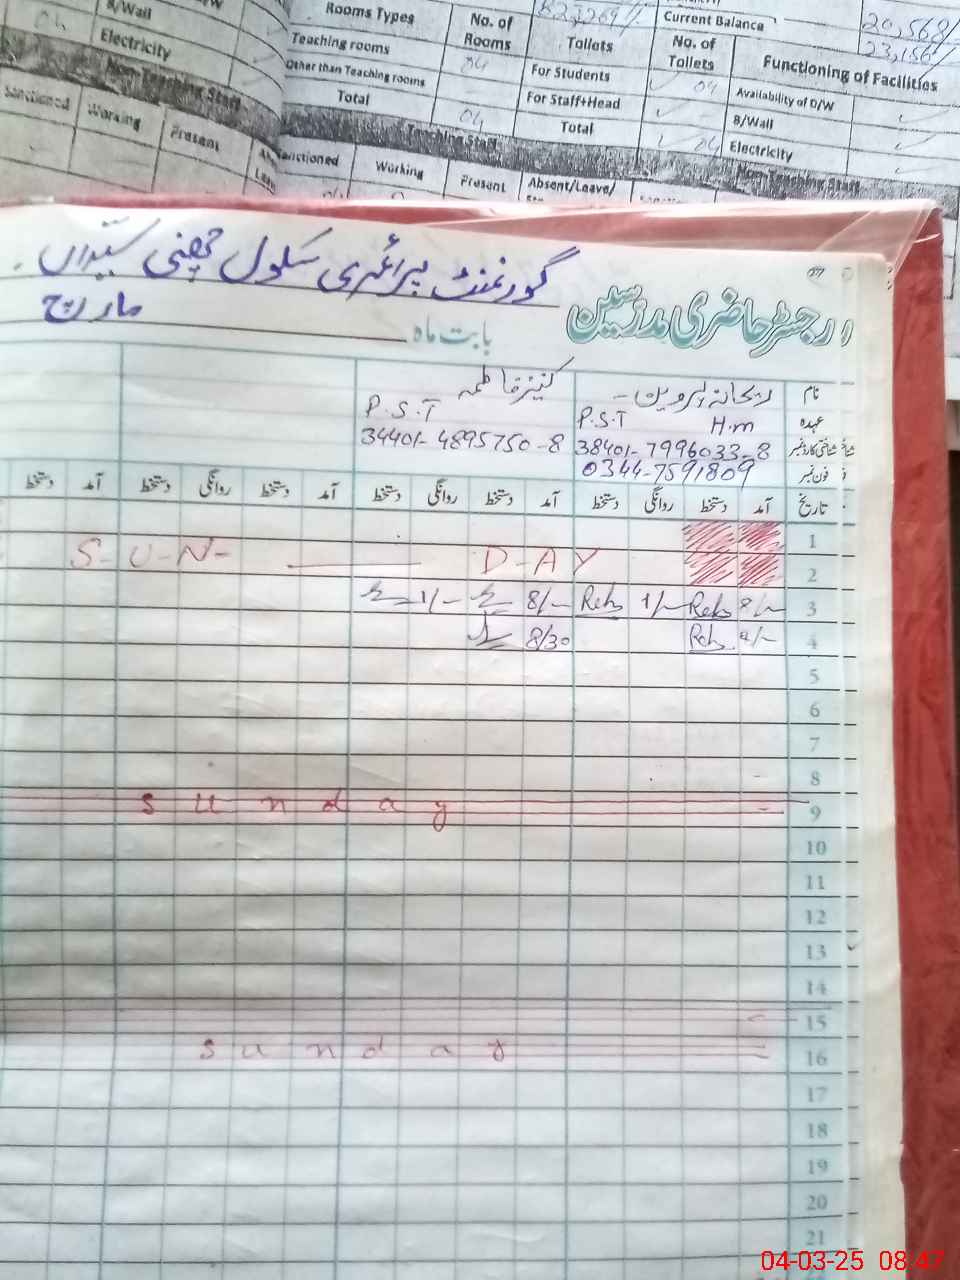 B/Wall
Electricity
Non-Teaching Staff
Sanctioned Working Present
Rooms Types No. of Rooms Toilets No. of Toilets Functioning of Facilities
Current Balance 20,568/
23,156/
Teaching rooms 04 For Students 04 Availability of D/W
Other than Teaching rooms For Staff+Head B/Wall
Total 04 Total 04 Electricity
Teaching Staff Non-Teaching Staff
Sanctioned Working Present Absent/Leave/
گورنمنٹ پرائمری سکول چھنی سیداں
رجسٹر حاضری مدرسین
بابت ماہ مارچ
نام ریحانہ پروین کنیز فاطمہ
عہدہ H.m P.S.T P.S.T
شناختی کارڈ نمبر 38401-7996033-8 34401-4895750-8
فون نمبر 0344-7591809
تاریخ آمد دستخط روانگی دستخط آمد دستخط روانگی دستخط آمد دستخط روانگی دستخط آمد دستخط
1
S-U-N- D-AY 2
1/- 8/- Reh 1/- Reh 8/- 3
8/30 Reh 4
5
6
7
8
sunday 9
10
11
12
13
14
15
sunday 16
17
18
19
20
21
04-03-25 08:47